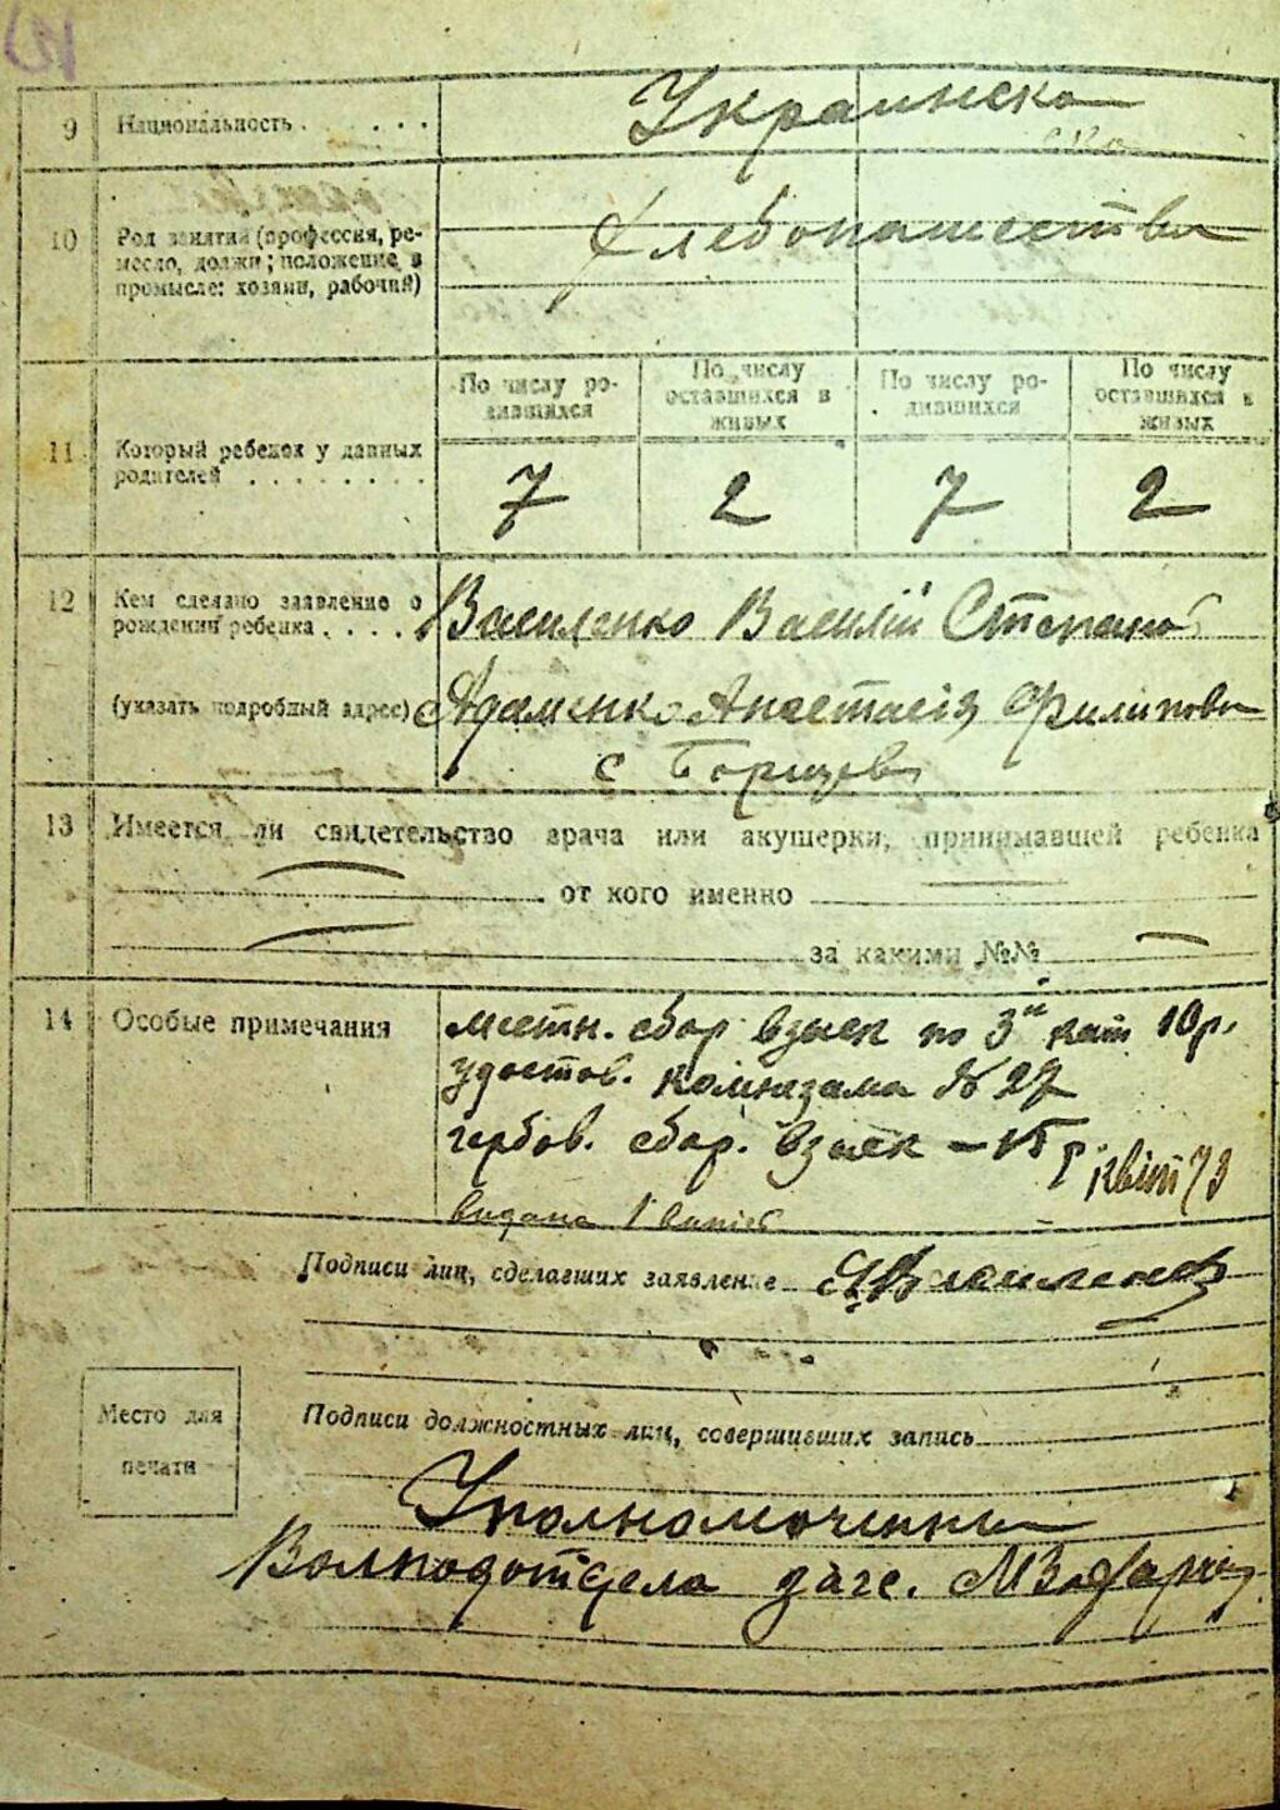 9 Национальность . . . . . . Украинска
10 Род занятий (профессия, ре-
месло, должн; положение в
промысле: хозяин, рабочий)
Хлебопашество
По числу ро-
дившихся
По числу
оставшихся в
живых
По числу ро-
дившихся
По числу
оставшихся в
живых
11 Который ребенок у данных
родителей . . . . . . . .
7 2 7 2
12 Кем сделано заявление о
рождении ребенка . . . .
(указать подробный адрес)
Василенко Василий Степанов
Адаменко Анастасія Филипова
с Борщев
13 Имеется ли свидетельство врача или акушерки, принимавшей ребенка
от кого именно
за какими №№
14 Особые примечания
местн. сбор взыск по 3й кат 10 р.
удостов. комнезама № 27
гербов. сбор. взыск – 15 р. квит 73
видана 1 випис
Подписи лиц, сделавших заявление
Место для
печати
Подписи должностных лиц, совершивших запись
Уполномоченный
Волподотдела загс.